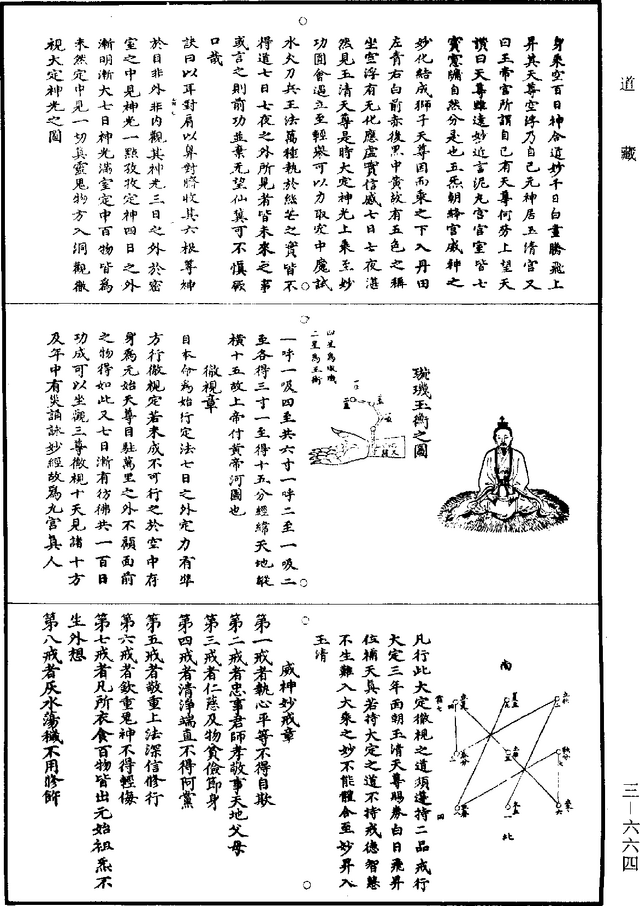 道藏
身乘空百日神合道妙千日白晝騰飛上
昇其天尊空浮乃自己元神居玉清宮又
曰玉帝官所謂自己有天尊何勞上望天
讚曰天尊雖遠妙近言泥丸宮宮室皆七
寶窻牖自然分是也五炁朝絳宮威神之
妙化結成獅子天尊因而乘之下入丹田
左青右白前赤後黑中黃故有五色之稱
坐空浮有无化應虛實信感七日七夜湛
然見玉清天尊是時大定神光上乘至妙
功圓會過立至輕舉可以力取定中魔試
水火刀兵王法萬種執於緣茫之實皆不
得道七日七夜之外所見者皆未來之事
或言之則前功並棄无望仙冀可不慎厥
口哉
訣曰以耳對肩以鼻對臍收其六根尊神
於目非外非內觀其神光三日之外於密
室之中見神光一點放牧定神四日之外
漸明漸大七日神光滿室定中百物皆爲
未然定中見一切真靈鬼物方入洞觀微
視大定神光之圖
璇璣玉衡之圖
四至爲璇璣
二至爲玉衡
一呼一吸四至共六寸一呼二至一吸二
至各得三寸一至得十五分經緯天地縱
橫十五故上帝付黃帝河圖也
微視章
目本命爲始行定法七日之外定力有準
方行微視定若未成不可行之於空中存
身爲元始天尊目駐萬里之外不顧面前
之物得如此又七日漸有彷彿共一百日
功成可以坐觀三尊微視十天見諸十方
及年中有災誦詠妙經故爲九宮真人
南
北
凡行此大定微視之道須遵持二品戒行
大定三年面朝玉清天尊賜券白日飛昇
位補天真若持大定之道不持戒德智慧
不生難入大乘之妙不能體合至妙昇入
玉清
威神妙戒章
第一戒者執心平等不得自欺
第二戒者忠事君師孝敬事天地父母
第三戒者仁慈及物貧儉節身
第四戒者清淨端直不得阿黨
第五戒者敬重上法深信修行
第六戒者欽重鬼神不得輕侮
第七戒者凡所衣食百物皆出元始祖炁不
生外想
第八戒者灰水蕩穢不用修飾
三—六六四